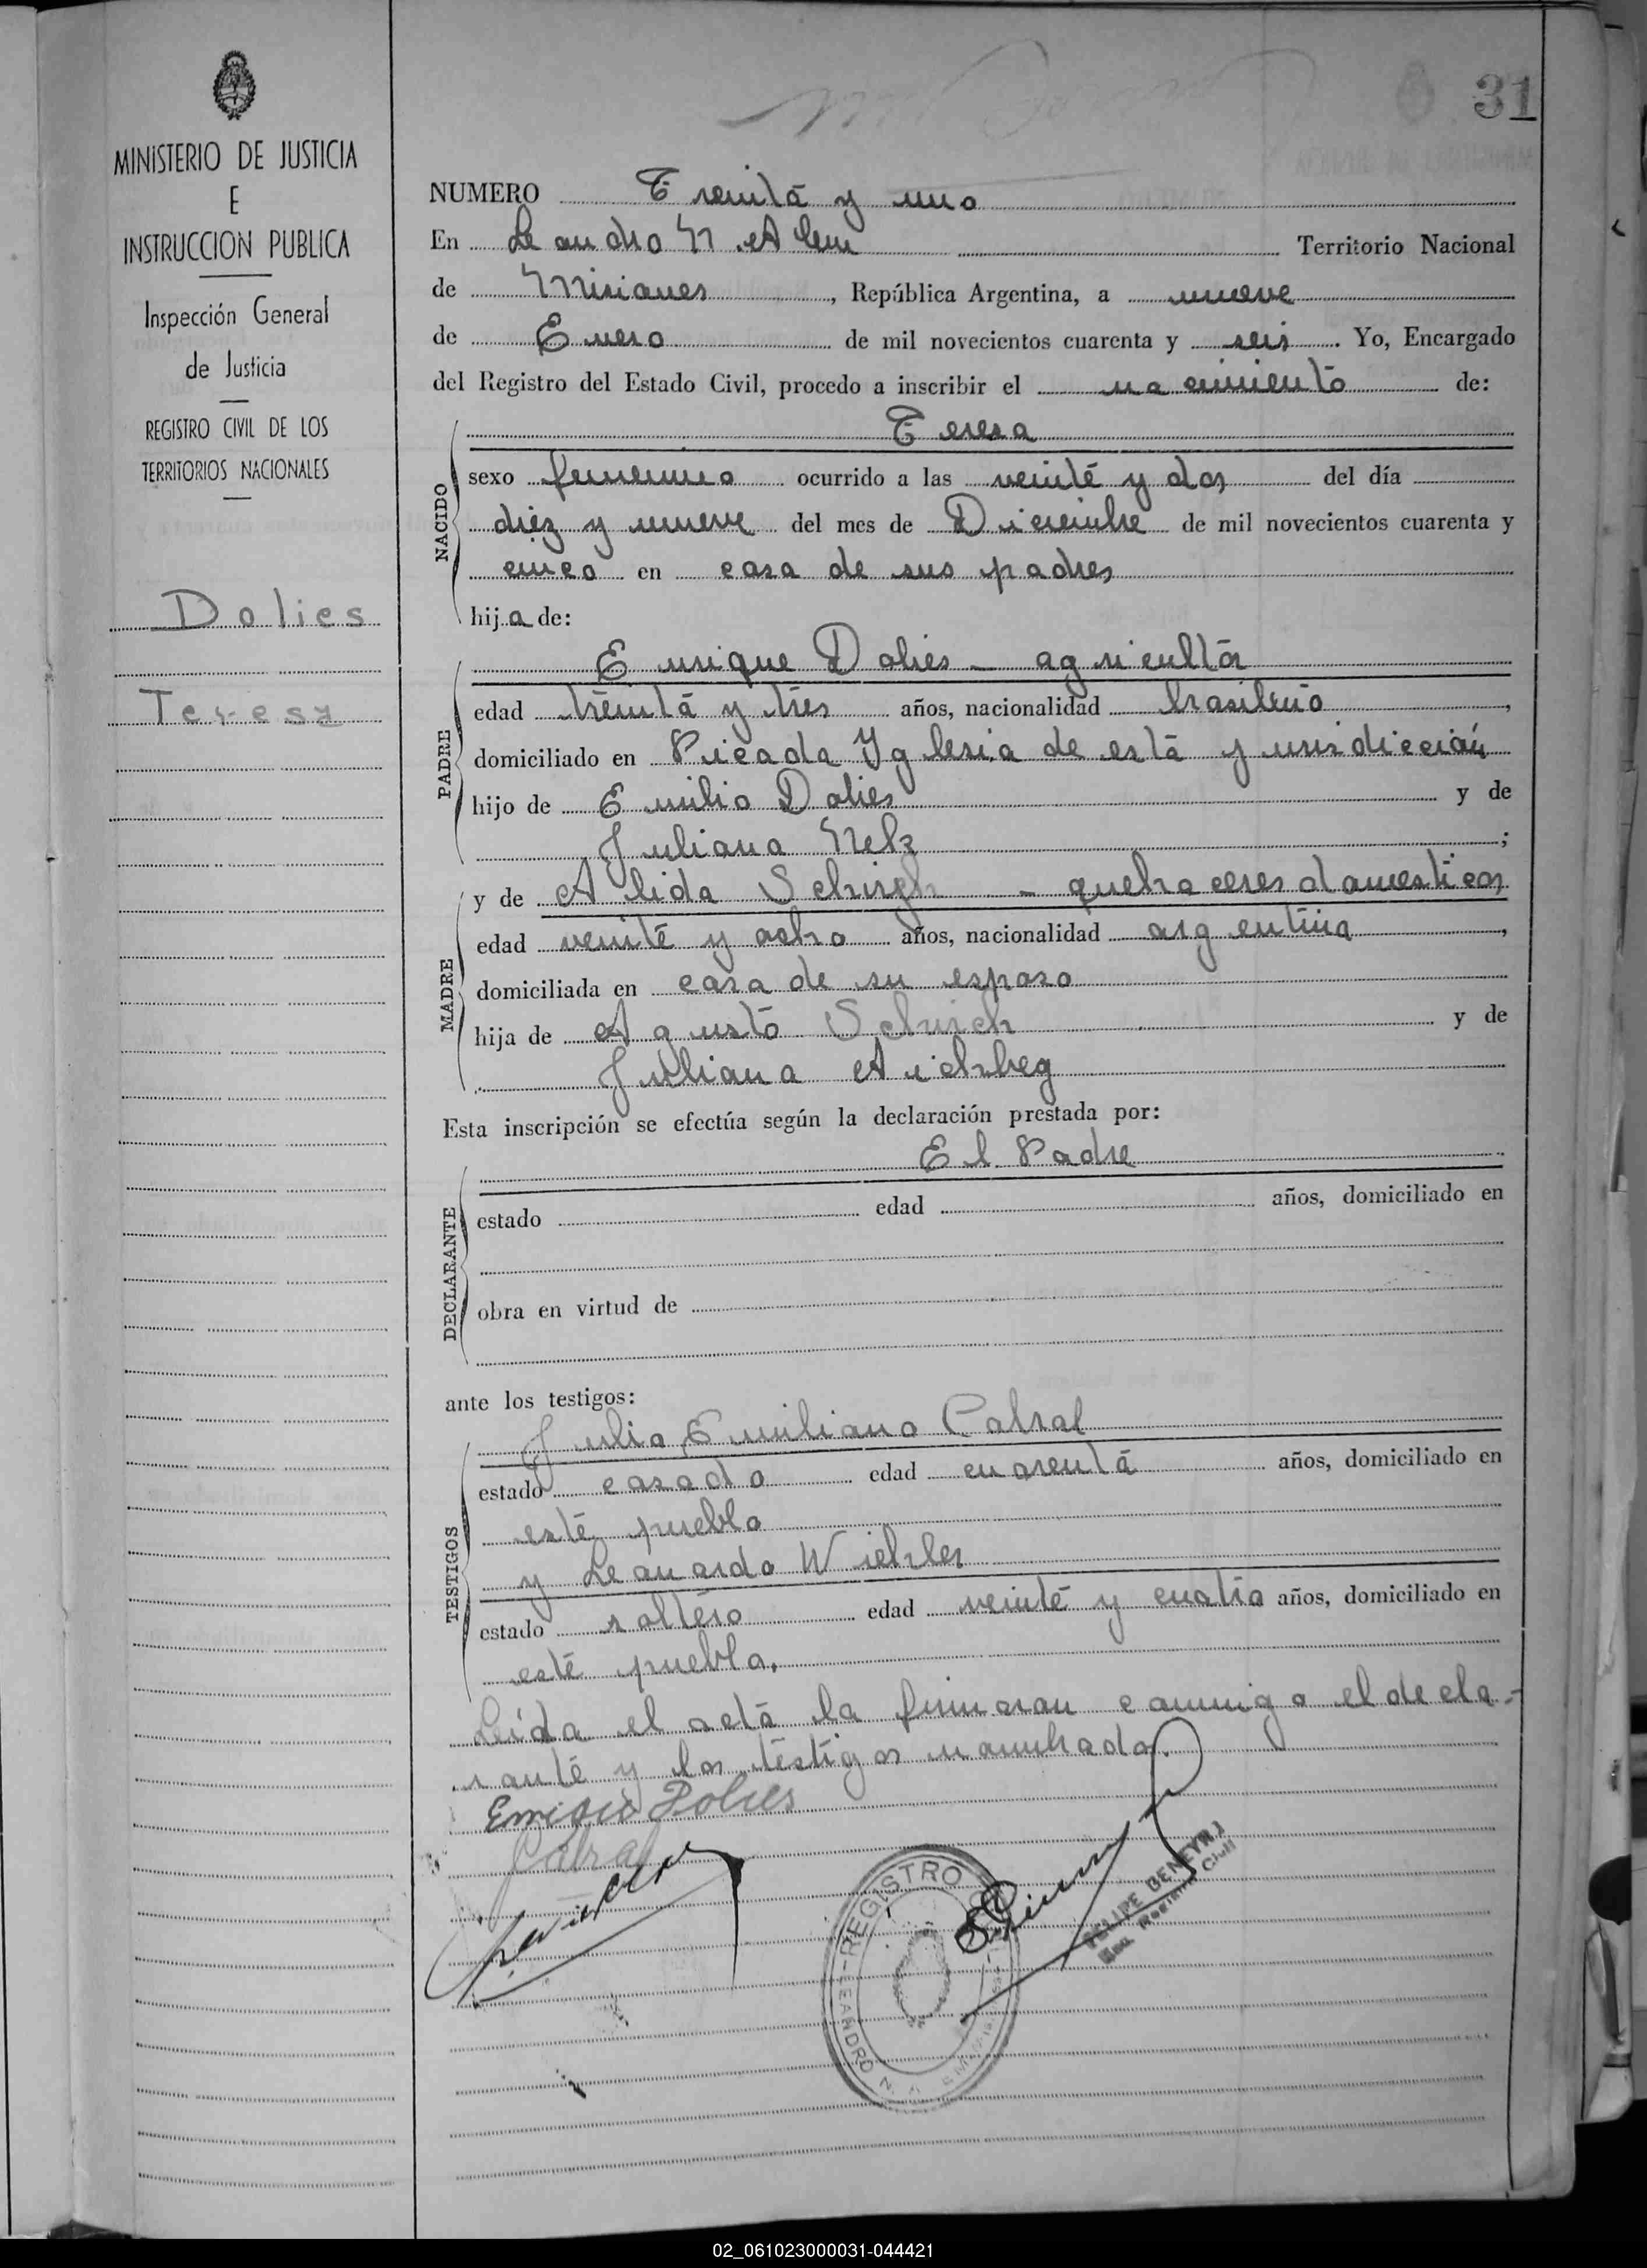 31
MINISTERIO DE JUSTICIA
E
INSTRUCCION PUBLICA
Inspección General
de Justicia
REGISTRO CIVIL DE LOS
TERRITORIOS NACIONALES
Dolies
Teresa
NUMERO Treinta y uno
En Leandro N. Alem Territorio Nacional
de Misiones, República Argentina, a nueve
de Enero de mil novecientos cuarenta y seis. Yo, Encargado
del Registro del Estado Civil, procedo a inscribir el nacimiento de:
NACIDO
Teresa
sexo femenino ocurrido a las veinte y dos del día
diez y nueve del mes de Diciembre de mil novecientos cuarenta y
cinco en casa de sus padres
hija de:
PADRE
Enrique Dolies - agricultor
edad treinta y tres años, nacionalidad brasileño,
domiciliado en Picada Yglesia de esta yurisdicción
hijo de Emilio Dolies y de
Juliana Nelz;
MADRE
y de Alida Schirch - quehaceres domesticos
edad veinte y ocho años, nacionalidad argentina,
domiciliada en casa de su esposo
hija de Agusto Schirch y de
Juliana
Esta inscripción se efectúa según la declaración prestada por:
DECLARANTE
El Padre
estado edad años, domiciliado en
obra en virtud de
ante los testigos:
TESTIGOS
Julio Emiliano Cabral
estado casado edad cuarenta años, domiciliado en
este pueblo
y Leonardo
estado soltero edad veinte y cuatro años, domiciliado en
este pueblo.
Leída el acta la firmaran conmigo el decla-
rante y los testigos nombrados.
Dolies
Cabral
REGISTRO
LEANDRO N.
FELIPE
02_061023000031-044421